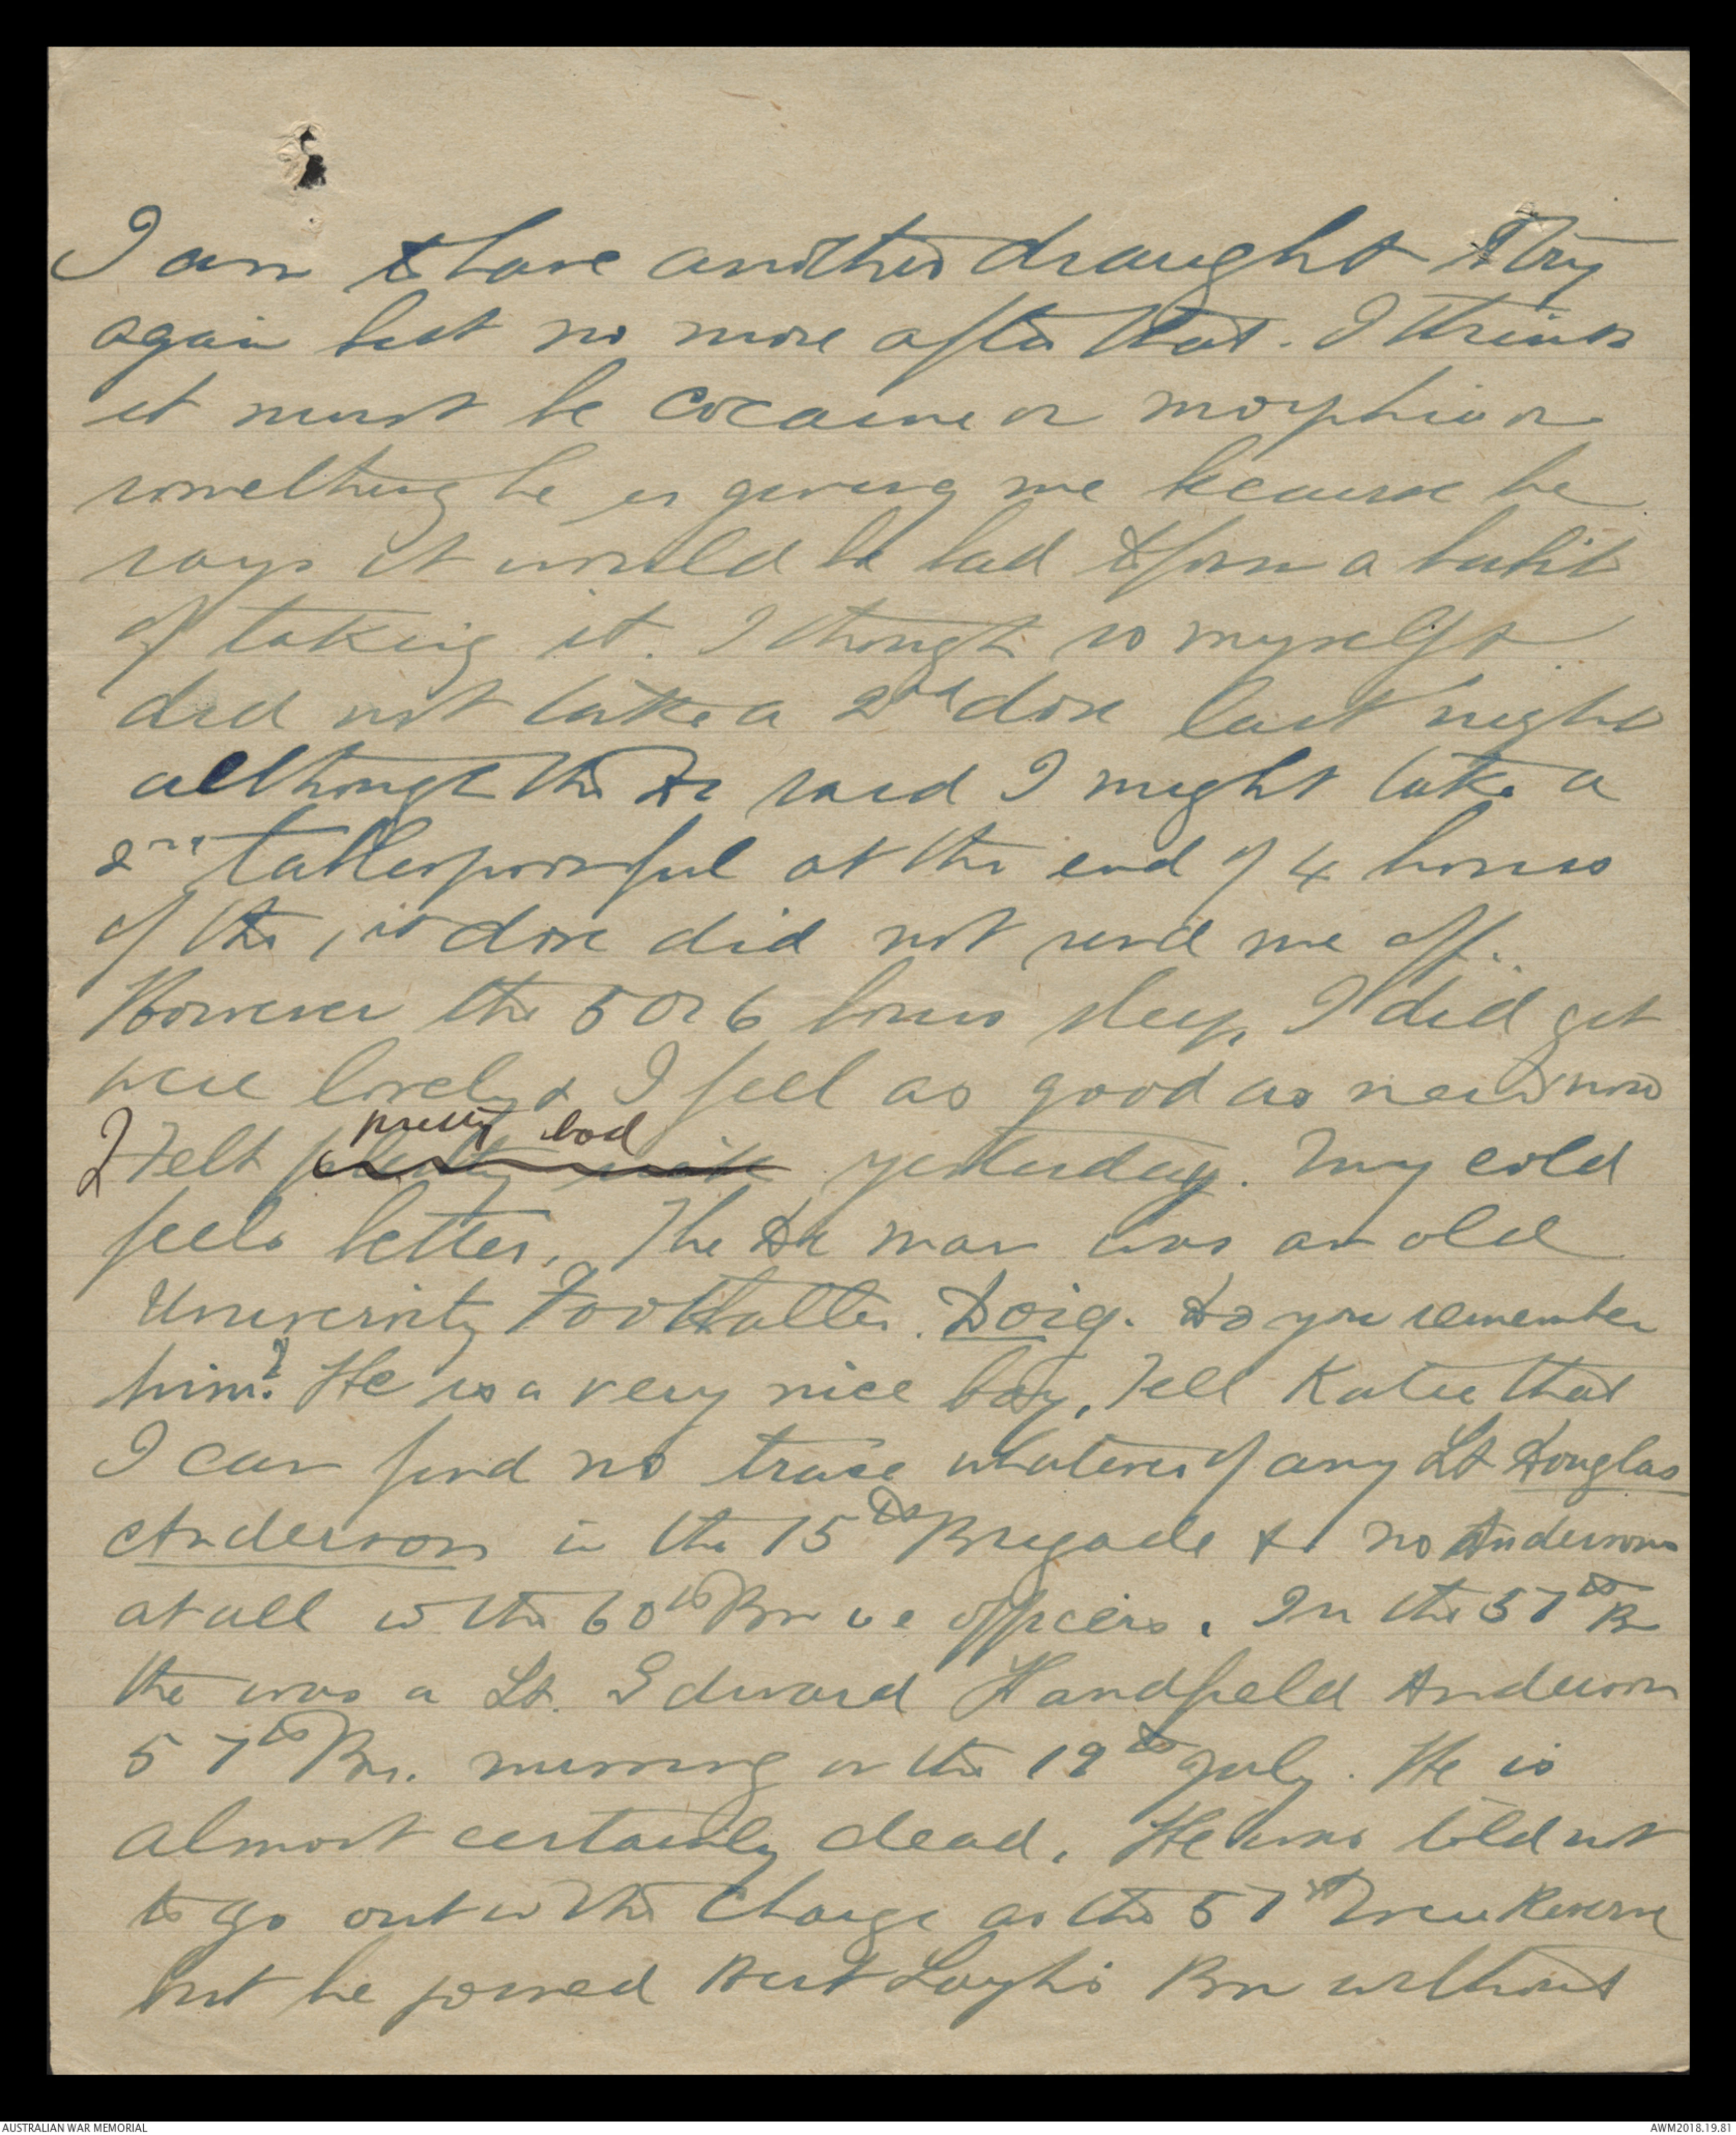 I am to have another draught & try
again but no more after that. I think
it must be cocaine or morphia or
something he is giving me because he
says it would be bad to form a habit
of taking it. I thought so myself &
did not take a 2nd dose last night
although the Dr said I might take a
2nd tablespoonful at the end of 4 hours
if the 1st dose did not send me off.
However the 5 or 6 hours sleep I did get
were lovely & I feel as good as new now
pretty bad
I Felt yesterday. My cold
feels better. The Dr man was an old
University Footballer. Doig. Do you remember
him? He is a very nice boy. Tell Katie that
I can find no trace whatever of any Lt Douglas
Anderson in the 15th Brigade & no Andersons
at all in the 60th Bn ie officers. In the 57th Bn
the was a Lt. Edward Handfield Anderson
57th Bn. missing on the 19th July. He is
almost certainly dead. He was told not
to go out with the charge as the 57th were Reserve
but he joined Bert Layh's Bn without
AUSTRALIAN WAR MEMORIAL
AWM2018.19.81